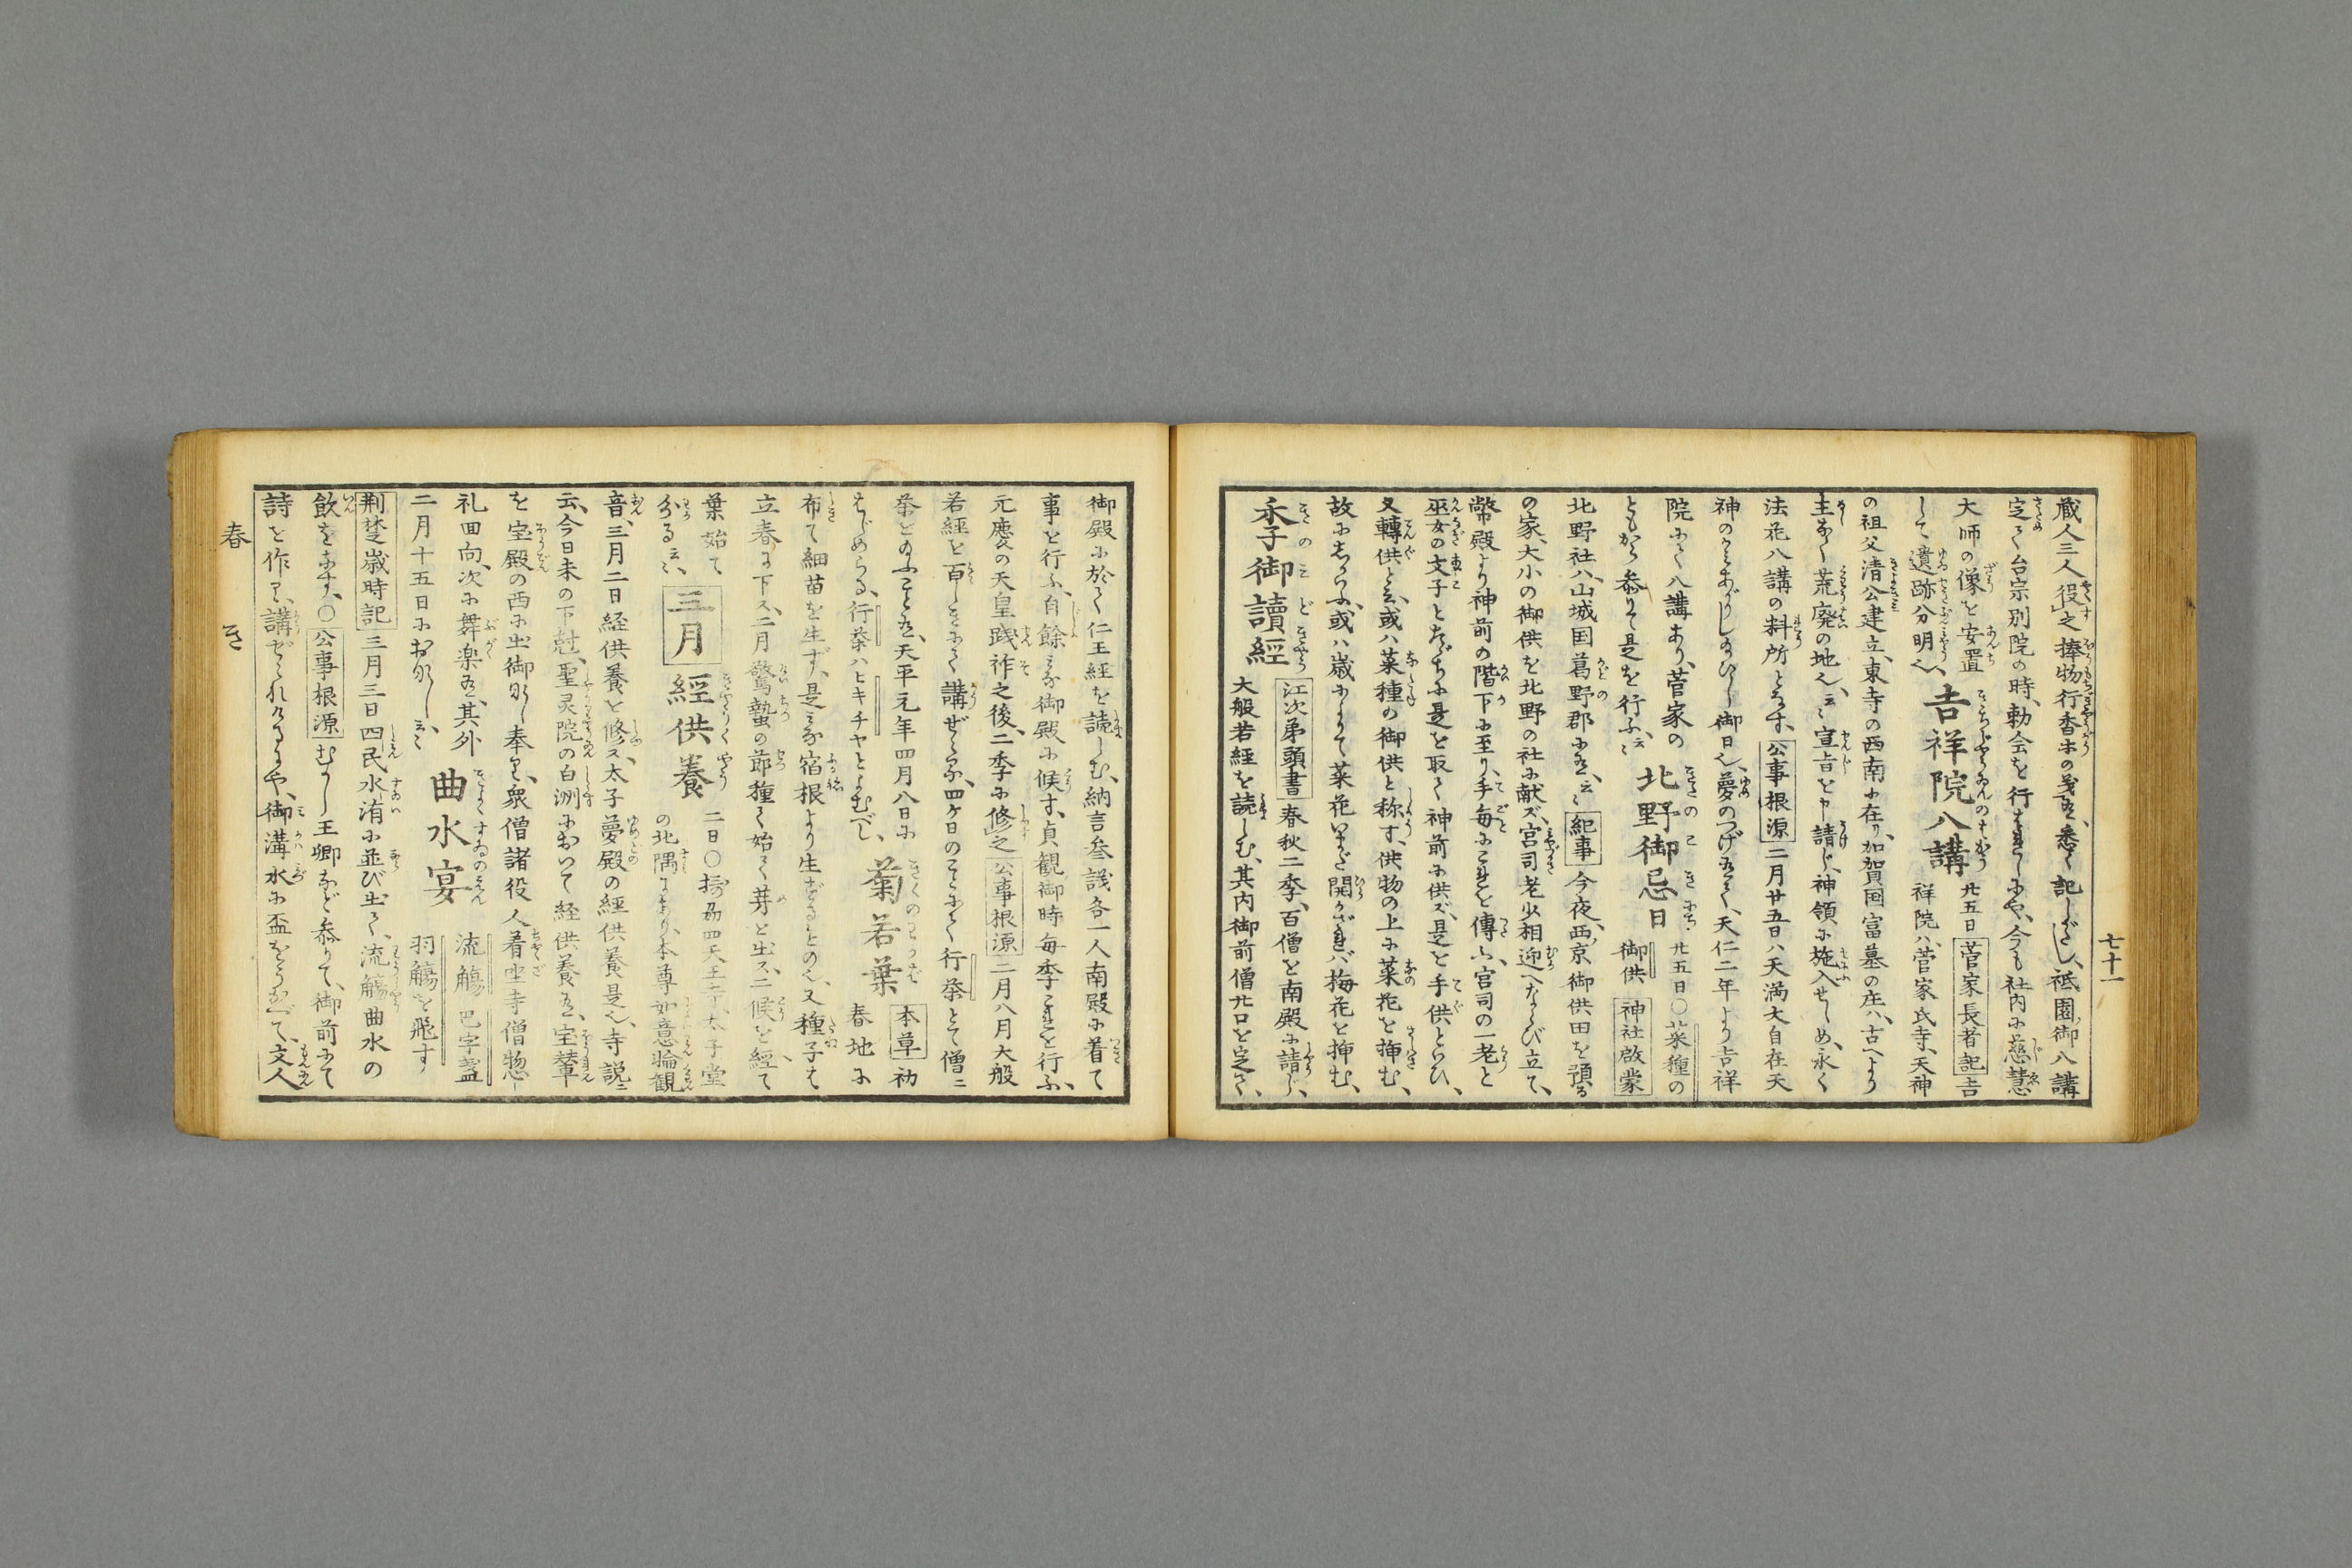 七十一
蔵人三人役之捧物行香ホの義有、悉く記しがたし、祇園御八講
定て台宗別院の時、勅会を行はれしにや、今も社内に慈慧
大師の像を安置
して遺跡分明也、
吉祥院八講
廿五日
菅家長者記
吉祥院ハ菅家氏寺、天神
の祖父清公建立、東寺の西南に在り、加賀国富墓の庄ハ、古へより
主なく荒廃の地也、云々、宣旨を申請じ、神領に施入せしめ、永く
法花八講の料所とす、公事根源二月廿五日ハ天満大自在天
神のかくれ給ひし御日也、夢のつげ有て、天仁二年より吉祥
院にて八講あり、菅家の
ともがら参りて是を行ふ、云々
北野御忌日
廿五日〇菜種の
御供
神社啟蒙
北野社ハ山城国葛野郡に有、云々、紀事今夜、西京御供田を預る
の家、大小の御供を北野の社に献ズ、宮司老少相迎へならび立て、
幣殿より神前の階下に至り、手毎にこれを傳ふ、宮司の一老と
巫女の文子とたゞちに是を取て神前に供ズ、是を手供といひ、
又轉供と云、或ハ菜種の御供と称す、供物の上に菜花を挿む、
故にしか云ふ、或ハ歳によりて菜花いまだ開かざれバ、梅花を挿む、
季御讀經
江次第頭書春秋二季、百僧を南殿に請じ、
大般若経を読しむ、其内御前僧廿口を定て、
御殿に於て仁王経を読しむ、納言参議各一人南殿に着て
事を行ふ、自餘ミな御殿に候す、貞観御時毎季これを行ふ、
元慶の天皇踐祚之後、二季に修之公事根源二月八月大般
若經を百しきにて講ぜらる、四ケ日のことにて、行茶とて僧ニ
茶を給ふこと有、天平元年四月八日に
はじめらる、行茶ハヒキチヤとよむべし、
菊若葉
本草初
春地に
布て細苗を生ず、是ミな宿根より生ずるもの也、又種子は
立春に下ス、二月驚蟄の節種て始て芽を出ス、二候を經て
葉始て
分る、云々、
三月
經供養
二日〇摂州四天王寺、太子堂
の北隅にあり、本尊如意輪観
音、三月二日経供養を修ス、太子夢殿の経供養是也、寺説ニ
云、今日未の下尅、聖灵院の白洲において経供養有、宝輦
を宝殿の西に出御なし奉り、衆僧諸役人着坐寺僧惣
礼回向、次に舞楽有、其外
二月十五日におなじ、云々
曲水宴
流觴
巴字盞
羽觴を飛す
荆楚歳時記三月三日四民水洧に並び出て、流觴曲水の
飲をなす、〇公事根源むかし王卿など参りて、御前にて
詩を作り、講ぜられけるにや、御溝水に盃をうかべて、文人
春
き